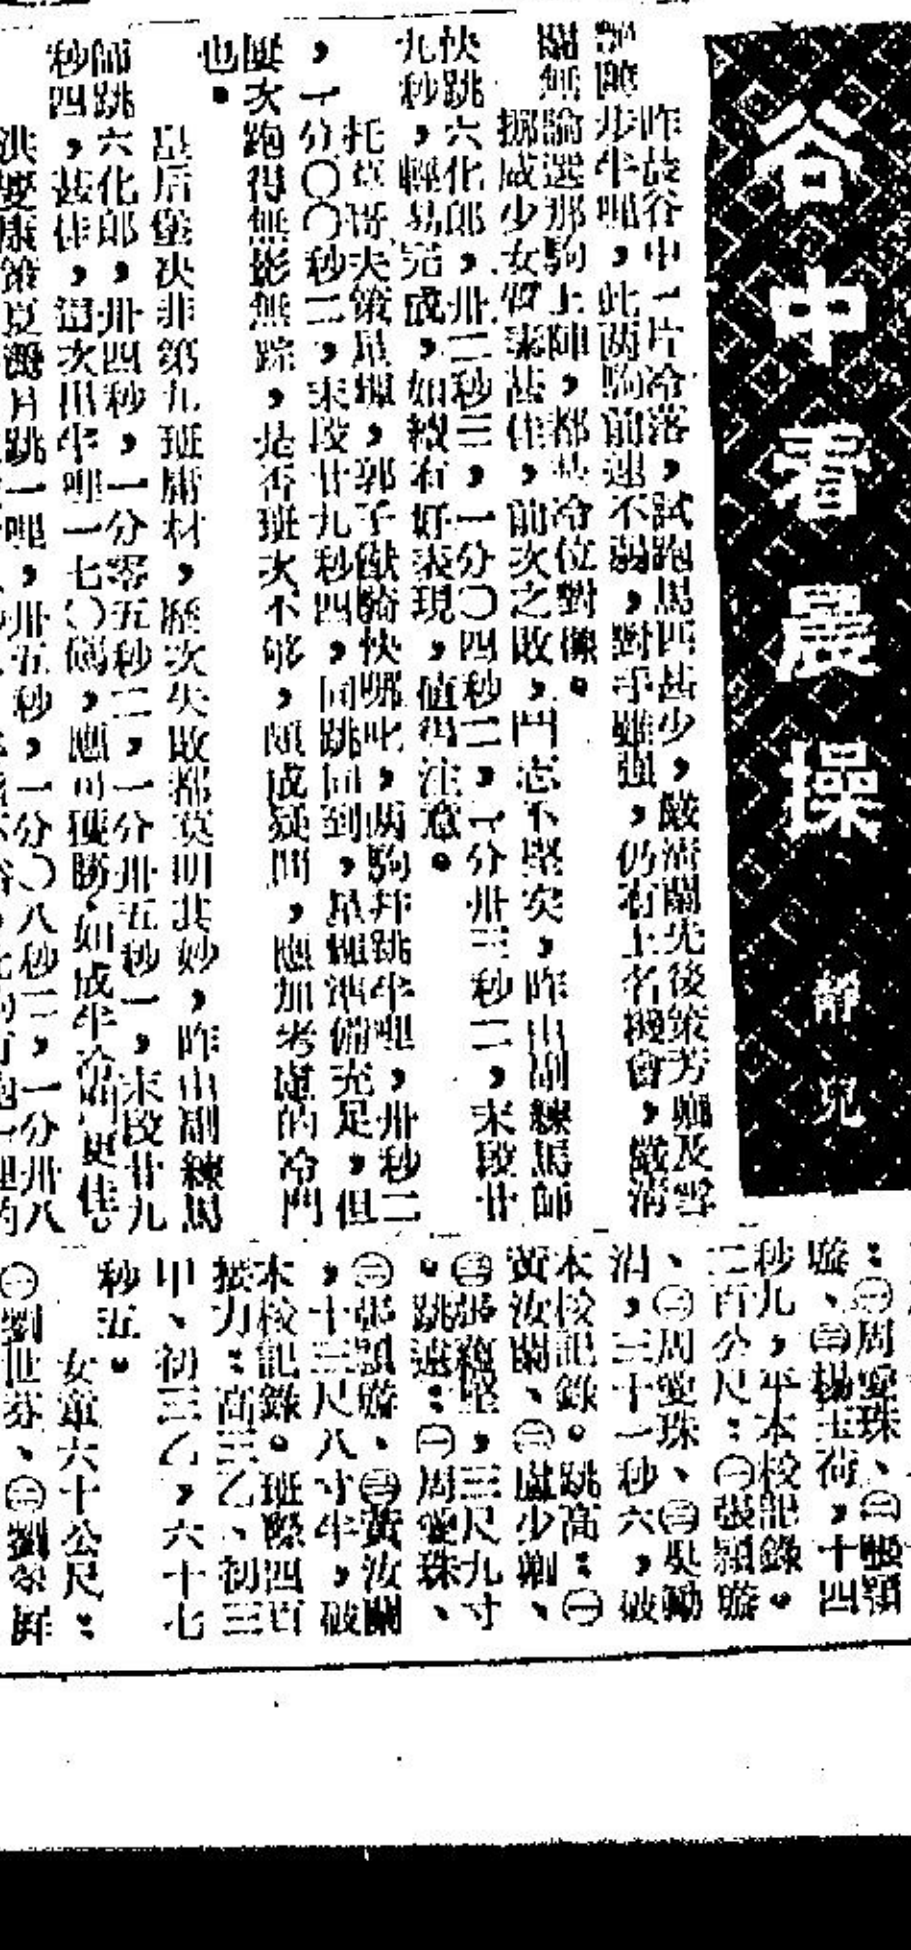 谷中看晨操
靜兒
昨晨谷中一片冷落，試跑馬匹甚少，嚴清關先後策芳颿及雪
艷跑步半哩，此兩駒前速不弱，對手雖強，仍有上名機會，嚴清
關無論選那駒上陣，都是冷位對象。
挪威少女似素甚佳，前次之敗，鬥志不堅矣，昨由副練馬師
快跳六化郎，卅二秒三，一分〇四秒二，一分卅三秒二，末段廿
九秒，輕易完成，如續有好表現，值得注意。
托哥夫策星輝，郭子猷騎快哪叱，兩駒并跳半哩，卅秒二
，一分〇〇秒二，末段廿九秒四，同跳同到，星輝準備充足，但
屢次跑得無影無踪，是否班次不够，頗成疑問，應加考慮的冷門
也。
皇后堡决非第九班庸材，歷次失敗都莫明其妙，昨由副練馬
師跳六化郎，卅四秒，一分零五秒二，一分卅五秒一，末段廿九
秒四，甚佳，這次出半哩一七〇碼，應可獲勝，如成半冷門更佳。
跳一哩，卅五秒，一分〇八秒二，一分卅八
：㊀周愛珠、㊁張顯
璇、㊂楊玉荷，十四
秒九，平本校記錄。
二百公尺：㊀張顯璇
、㊁周愛珠、㊂吳勵
涓，三十一秒六，破
本校記錄。跳高：㊀
黃汝蘭、㊁盧少卿、
㊂張蘊堅，三尺九寸
。跳遠：㊀周愛珠、
㊁張顯璇、㊂黃汝蘭
，十三尺八寸半，破
本校記錄。班際四百
接力：高三乙、初三
甲、初三乙，六十七
秒五。
女童六十公尺：
㊀劉世芬、㊁劉翠屏